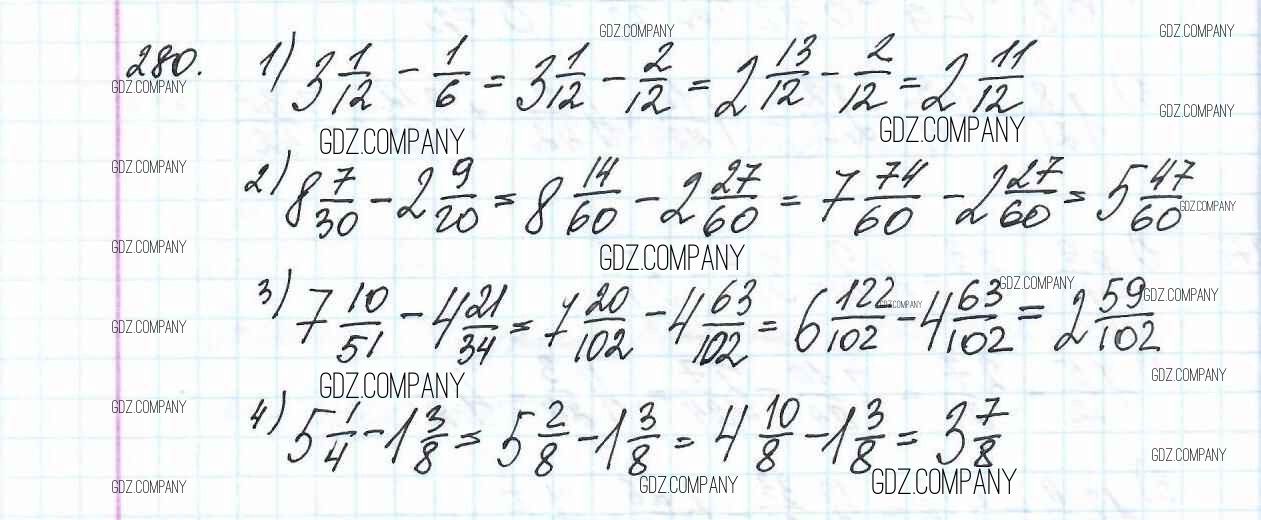 GDZ.COMPANY GDZ.COMPANY
280. 1) 3 1/12 - 1/6 = 3 1/12 - 2/12 = 2 13/12 - 2/12 = 2 11/12
GDZ.COMPANY GDZ.COMPANY
GDZ.COMPANY GDZ.COMPANY
GDZ.COMPANY
2) 8 7/30 - 2 9/20 = 8 14/60 - 2 27/60 = 7 74/60 - 2 27/60 = 5 47/60
GDZ.COMPANY
GDZ.COMPANY GDZ.COMPANY
GDZ.COMPANY GDZ.COMPANY
3) 7 10/51 - 4 21/34 = 7 20/102 - 4 63/102 = 6 122/102 - 4 63/102 = 2 59/102
GDZ.COMPANY GDZ.COMPANY
GDZ.COMPANY GDZ.COMPANY
GDZ.COMPANY
4) 5 1/4 - 1 3/8 = 5 2/8 - 1 3/8 = 4 10/8 - 1 3/8 = 3 7/8
GDZ.COMPANY
GDZ.COMPANY GDZ.COMPANY GDZ.COMPANY